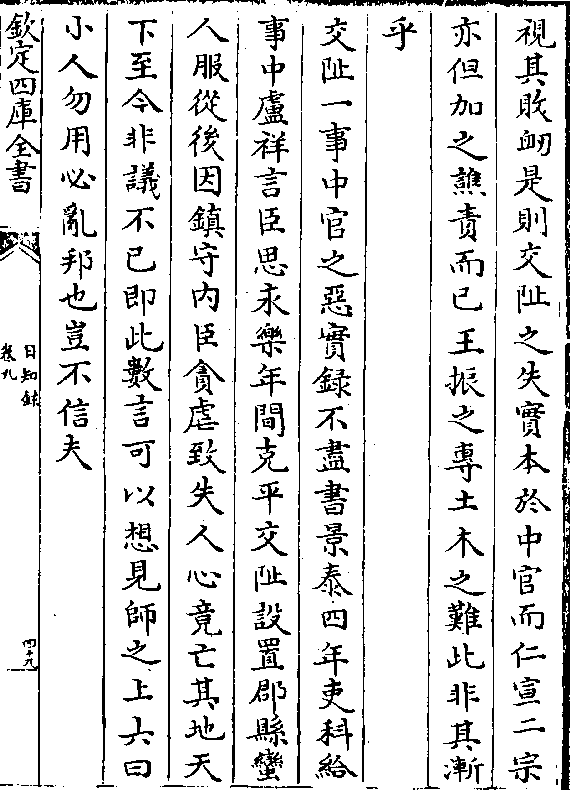 視其敗衂是則交阯之失實本於中官而仁宣二宗
亦但加之譙責而已王振之專土木之難此非其漸
乎
交阯一事中官之惡實録不盡書景泰四年吏科給
事中盧祥言臣思永樂年間克平交阯設置郡縣蠻
人服從後因鎮守内臣貪虐致失人心竟亡其地天
下至今非議不已即此數言可以想見師之上六曰
小人勿用必亂邦也豈不信夫
欽定四庫全書
日知録
卷九
四十九